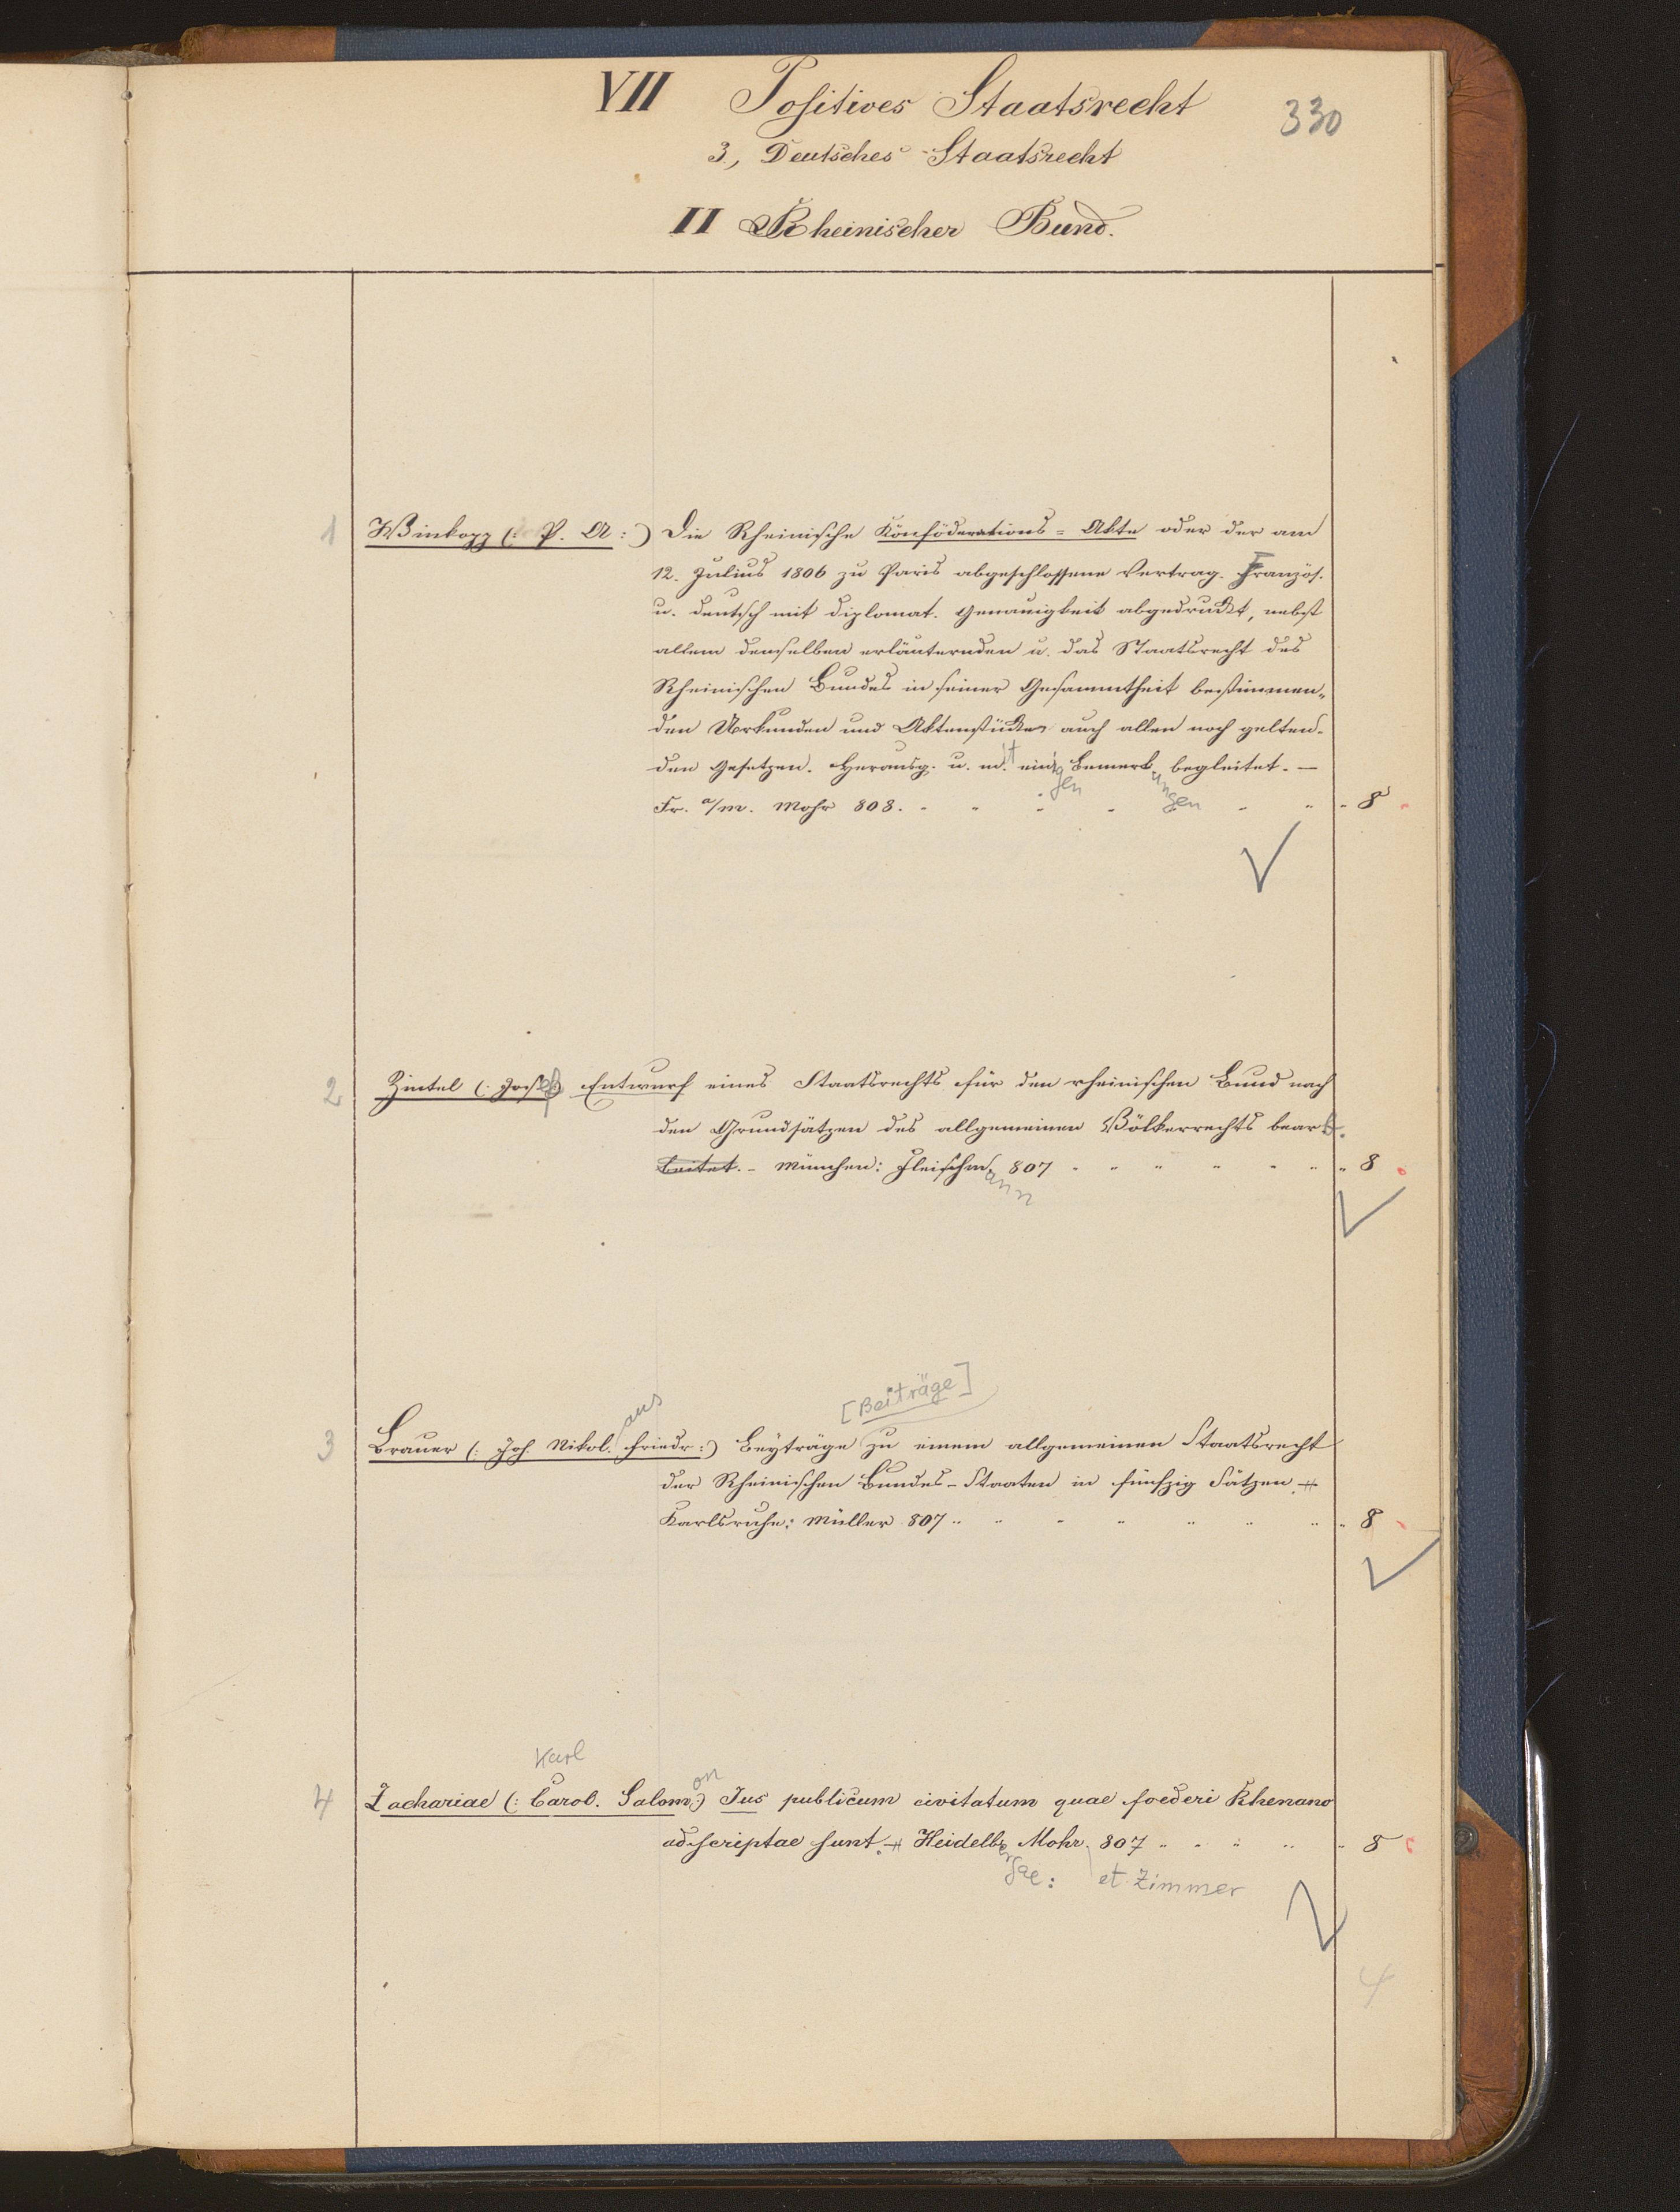 VII Positives Staatsrecht
330
3, Deutsches Staatsrecht
II Rheinischer Bund.
1 Winkopp (: P. A :) Die Rheinische Konföderations = Akte oder der am
12. Julius 1806 zu Paris abgeschlossene Vertrag. Französ.
u. deutsch mit diplomat. Genauigkeit abgedruckt, nebst
allem denselben erläuternden u. das Staatsrecht des
Rheinischen Bundes in seiner Gesammtheit bestimmen„
den Urkunden und Aktenstücke auch allen noch gelten-
den Gesetzen. Herausg. u. mit einigen Bemerkungen begleitet. —
Fr. a/m. Mohr 808. 8
2 Zintel (: Josef) Entwurf eines Staatsrechts für den rheinischen Bund nach
den Grundsätzen des allgemeinen Völkerrechts bearb.
beitet. - München: Fleischmann 807 8
[Beiträge]
aus
3 Brauer (: Joh. Nikol. Friedr :) Beyträge zu einem allgemeinen Staatsrecht
der Rheinischen Bundes-Staaten in fünfzig Sätzen
Karlsruhe: Müller 807 8
Karl
on
4 Zachariae (: Carol. Salom :) Jus publicum civitatum quae foederi Rhenano
adscriptae sunt. Heidelbergae: Mohr. 807 8
et Zimmer
4